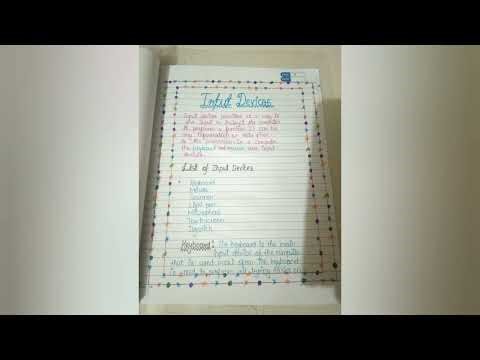 Input Devices
Input devices provides us a way to
the input or
to programs a function. It can be
any information or data from
to the processor. In a computer
the keyboard and mouse are Input
devices.
List of Input Devices
Keyboard
Mouse
Scanner
Light pen
Microphone
Touchscreen
Joystick
Keyboard : The keyboard is the main
Input device of the computer
that is used most often. The keyboard
is used to perform all typing